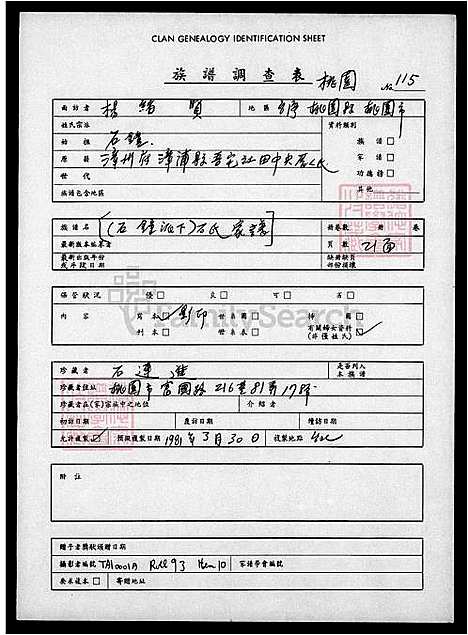 CLAN GENEALOGY IDENTIFICATION SHEET
族譜調查表 桃園 No 115
面訪者 楊緒賢 地區 台灣 桃園縣 桃園市
姓氏宗派 資料類別
始祖 石鐘 族譜 □
原籍 漳州府漳浦縣 社田中央 家譜 □
世代 功德簿 □
族譜包含地區 其他
族譜名 [(石鐘派下)石氏家譜] 冊卷數 冊 卷
最新版本編纂者 頁數 21面
最新出版年份 缺冊缺頁
或手段日期 部份損壞
保管狀況 優 □ 良 □ 可 □ 劣 □
內容 寫本 影印 世系圖 □ 排圖 □
刊本 □ 世系表 □ 有關婦女資料
(非僅姓氏)
珍藏者 石連進 是否列入
本族譜
珍藏者住址 桃園市富國路216巷81弄17號
珍藏者在(家)宗族中之地位 介紹者
初訪日期 度訪日期 續訪日期
允許複製 預期複製日期 1981年3月30日 複製地點
附註
贈予者獎狀頒贈日期
攝影者編號 TA10001A Roll 93 Item 10 家譜學會編號
要求複本 □ 寄贈地址
FamilySearch